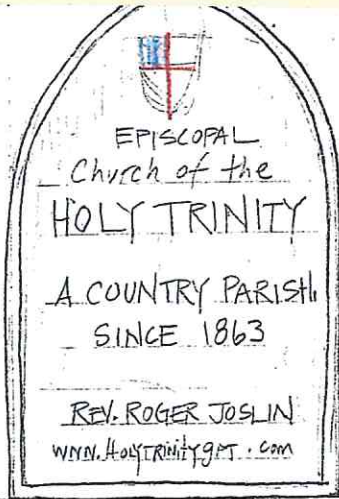 EPISCOPAL
Church of the
HOLY TRINITY
A COUNTRY PARISH
SINCE 1863
REV. ROGER JOSLIN
www.HOLYTRINITYgPJ.com